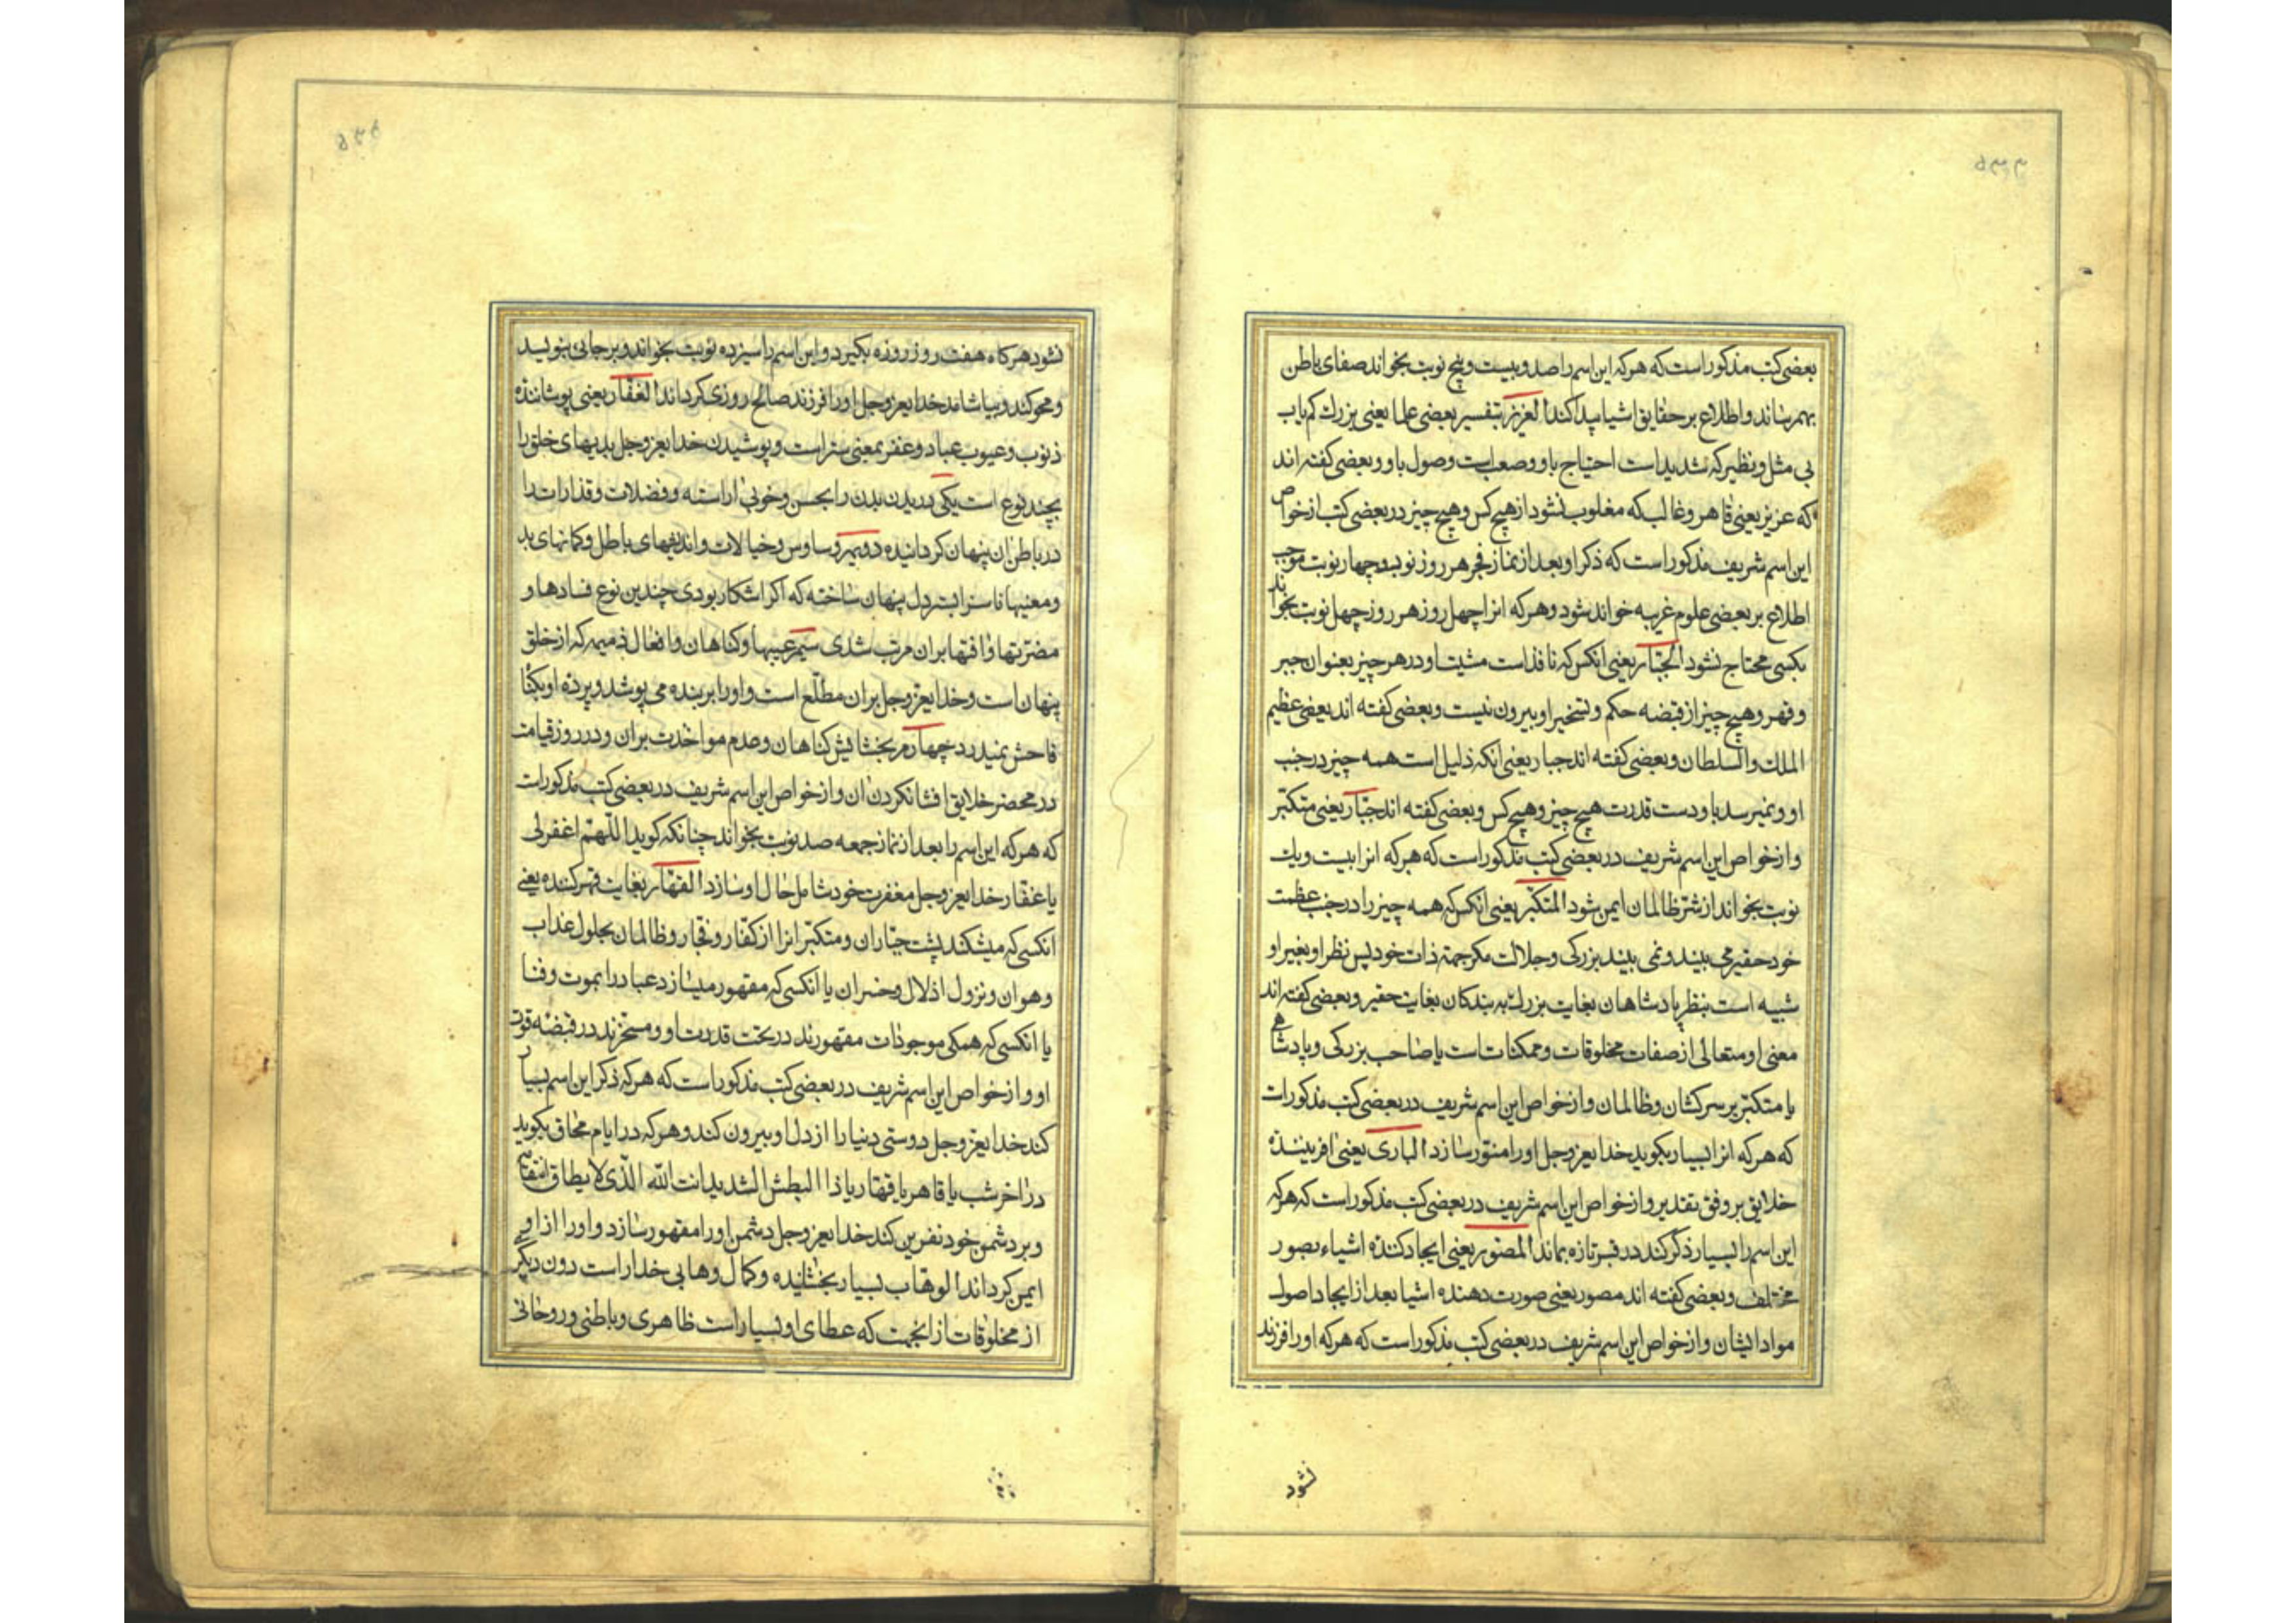 بعضی کتب مذکور است که هر که این اسم را صد و بیست و پنج نوبت بخواند صفای باطن
بهم رساند و اطلاع بر حقایق اشیا پیدا کند العزیز بتفسیر بعضی علما یعنی بزرك کم یاب
بی مثل و نظیر که شدید است احتیاج باو و صعب است وصول باو و بعضی کفته اند
که عزیز یعنی قاهر و غالب که مغلوب نشود از هیچ کس و هیچ چیز در بعضی کتب از خواص
این اسم شریف مذکور است که ذکر او بعد از نماز فجر هر روز نود و چهار نوبت موجب
اطلاع بر بعضی علوم غریبه خواند شود و هر که انرا چهل روز هر روز چهل نوبت بخواند
بکسی محتاج نشود الجبّار یعنی آنکس که نافذ است مشیت او در هر چیز بعنوان جبر
و قهر و هیچ چیز از قبضه حکم و تسخیر او بیرون نیست و بعضی کفته اند یعنی عظیم
الملك والسلطان و بعضی کفته اند جبار یعنی انکه ذلیل است همه چیز در جنب
او و نمیرسد باو دست قدرت هیچ چیز و هیچ کس و بعضی کفته اند جبّار یعنی متکبّر
و از خواص این اسم شریف در بعضی کتب مذکور است که هر که انرا بیست و یك
نوبت بخواند از شرّ ظالمان ایمن شود المتکبّر یعنی انکس که همه چیز را در جنب عظمت
خود حقیر می بیند و نمی بیند بزرکی و جلالت مکر جهة ذات خود پس نظر او بغیر او
شبیه است بنظر پادشاهان بغایت بزرك به بندکان بغایت حقیر و بعضی کفته اند
معنی او متعالی از صفات مخلوقات و ممکنات است یا صاحب بزرکی و پادشاهی
یا متکبّر بر سرکشان و ظالمان و از خواص این اسم شریف در بعضی کتب مذکور است
که هر که انرا بسیار بکوید خدایعزوجل او را منوّر سازد الباری یعنی افریننده
خلایق بر وفق تقدیر و از خواص این اسم شریف در بعضی کتب مذکور است که هر که
این اسم را بسیار ذکر کند در قبر تازه بماند المصوّر یعنی ایجاد کننده اشیاء بصور
مختلف و بعضی کفته اند مصور یعنی صورت دهنده اشیا بعد از ایجاد اصول
مواد ایشان و از خواص این اسم شریف در بعضی کتب مذکور است که هر که او را فرزند
نشود
نشود هر کاه هفت روز روزه بکیرد و این اسم را سیزده نوبت بخواند و بر جائی بنویسد
و محو کند و بیاشامد خدایعزوجل او را فرزند صالح روزی کرداند الغفّار یعنی پوشاننده
ذنوب و عیوب عباد و غفر بمعنی ستر است و پوشیدن خدایعزوجل بدیهای خلق را
بچند نوع است یکی در بدن بدن را بحسن و خوبی اراسته و فضلات و قذارات را
در باطن ان پنهان کردانیده دویم وساوس و خیالات و اندیشهای باطل و کمانهای بد
و معنیها ناسزا بستر دل پنهان ساخته که اکر اشکار بودی چندین نوع فسادها و
مضرتها و افتها بران مرتب شدی سیم عیبها و کناهان و افعال ذمیمه که از خلق
پنهان است و خدایعزوجل بران مطلّع است و او را بر بنده می پوشد و پرده او بکناه
فاحش نمیدرد چهارم بخشایش کناهان و عدم مواخذت بران و در روز قیامت
در محضر خلایق افشا نکردن ان و از خواص این اسم شریف در بعضی کتب مذکور است
که هر که این اسم را بعد از نماز جمعه صد نوبت بخواند چنانکه کوید اللّهمّ اغفر لی
یا غفّار خدایعزوجل مغفرت خود شامل حال او سازد القهّار بغایت قهر کننده یعنی
انکسی که میشکند پشت جبّاران و متکبّرانرا از کفّار و فجّار و ظالمان بحلول عذاب
و هوان و نزول اذلال و خسران یا انکسی که مقهور میسازد عباد را بموت و فنا
یا انکسی که همکی موجودات مقهورند در تحت قدرت او و مسخّرند در قبضه قوت
او و از خواص این اسم شریف در بعضی کتب مذکور است که هر که ذکر این اسم بسیار
کند خدایعزوجل دوستی دنیا را از دل او بیرون کند و هر که در ایام محاق بکوید
در اخر شب یا قاهر یا قهّار یا ذا البطش الشدید انت الله الّذی لا یطاق انتقامه
و بر دشمن خود نفرین کند خدایعزوجل دشمن او را مقهور سازد و او را از او
ایمن کرداند الوهّاب بسیار بخشاینده و کمال وهابی خدا راست دون دیکر
از مخلوقات از انجهت که عطای او بسیار است ظاهری و باطنی و روحانی